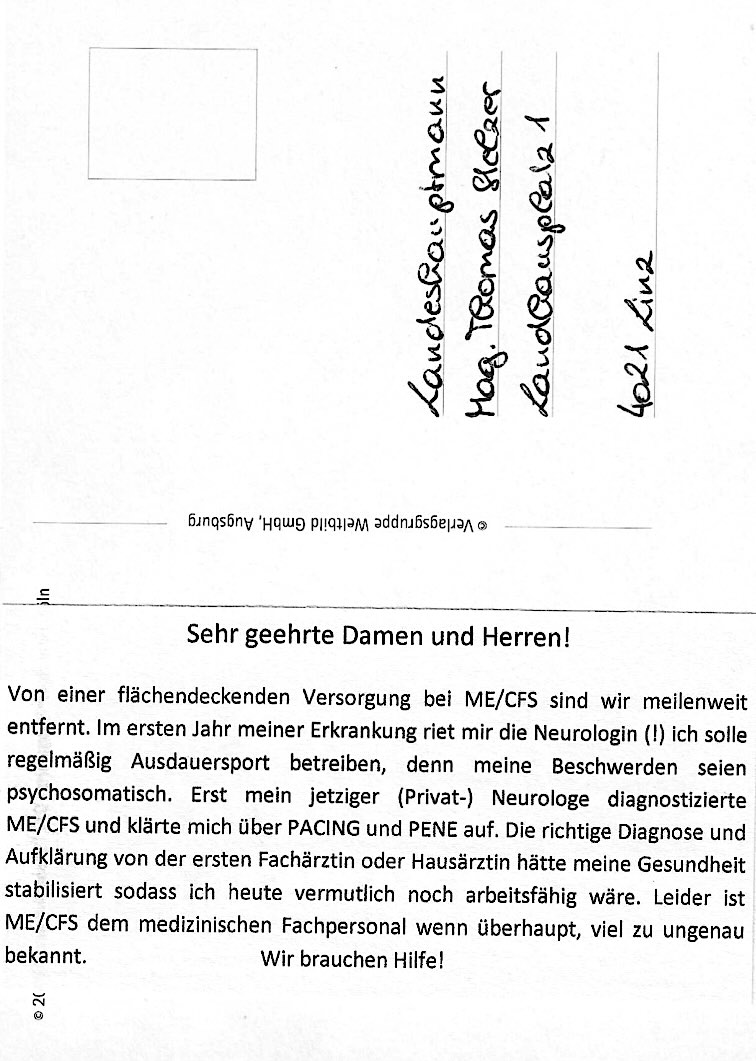 Landeshauptmann
Mag. Thomas Stelzer
Landhausplatz 1
4021 Linz
© Verlagsgruppe Weltbild GmbH, Augsburg
Sehr geehrte Damen und Herren!
Von einer flächendeckenden Versorgung bei ME/CFS sind wir meilenweit
entfernt. Im ersten Jahr meiner Erkrankung riet mir die Neurologin (!) ich solle
regelmäßig Ausdauersport betreiben, denn meine Beschwerden seien
psychosomatisch. Erst mein jetziger (Privat-) Neurologe diagnostizierte
ME/CFS und klärte mich über PACING und PENE auf. Die richtige Diagnose und
Aufklärung von der ersten Fachärztin oder Hausärztin hätte meine Gesundheit
stabilisiert sodass ich heute vermutlich noch arbeitsfähig wäre. Leider ist
ME/CFS dem medizinischen Fachpersonal wenn überhaupt, viel zu ungenau
bekannt. Wir brauchen Hilfe!